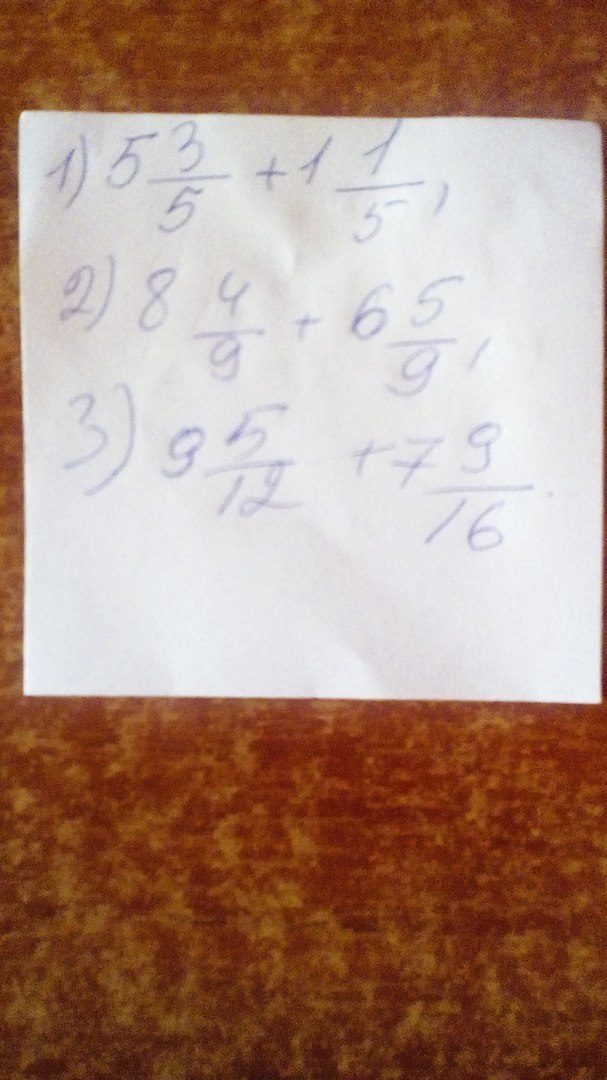 1) 5 3/5 + 1 1/5,
2) 8 4/9 + 6 5/9,
3) 9 5/12 + 7 9/16.